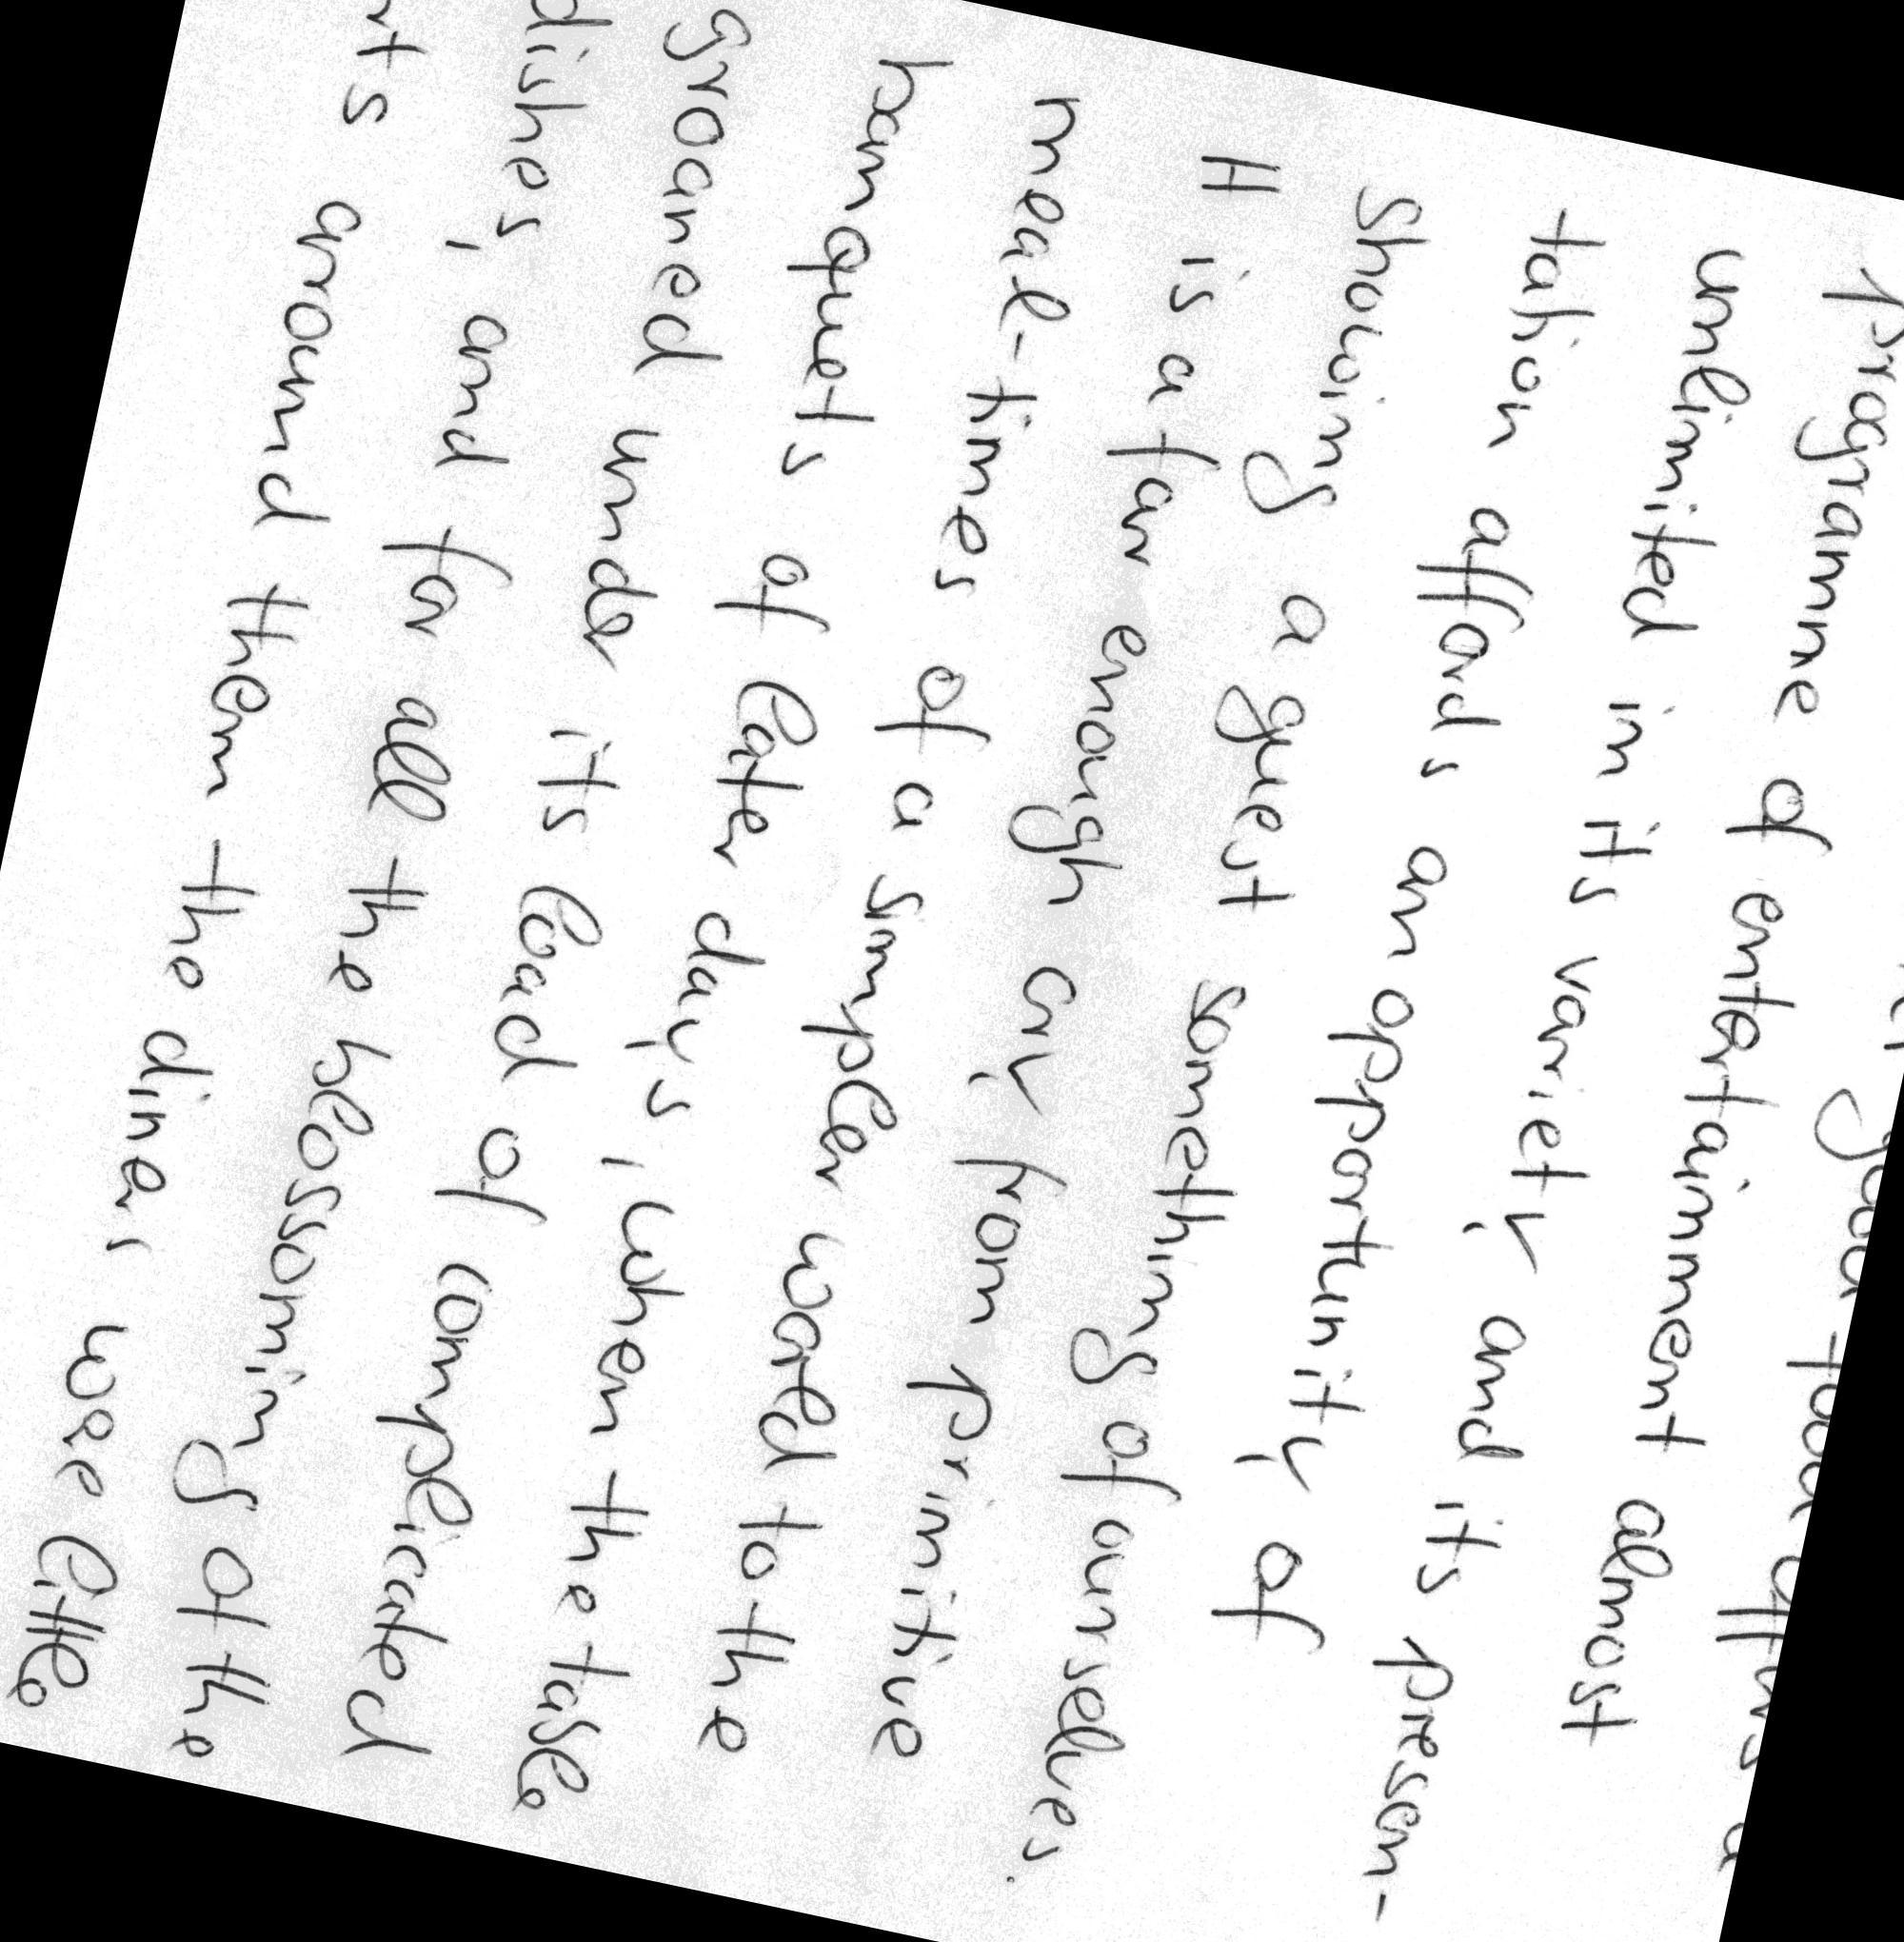 programme of entertainment almost
unlimited in its variety and its presen-
tation affords an opportunity of
showing a guest something of ourselves.
It is a far enough cry from primitive
meal-times of a simpler world to the
banquets of later days, when the table
groaned under its load of complicated
dishes, and for all the blossoming of the
around them the diners were little